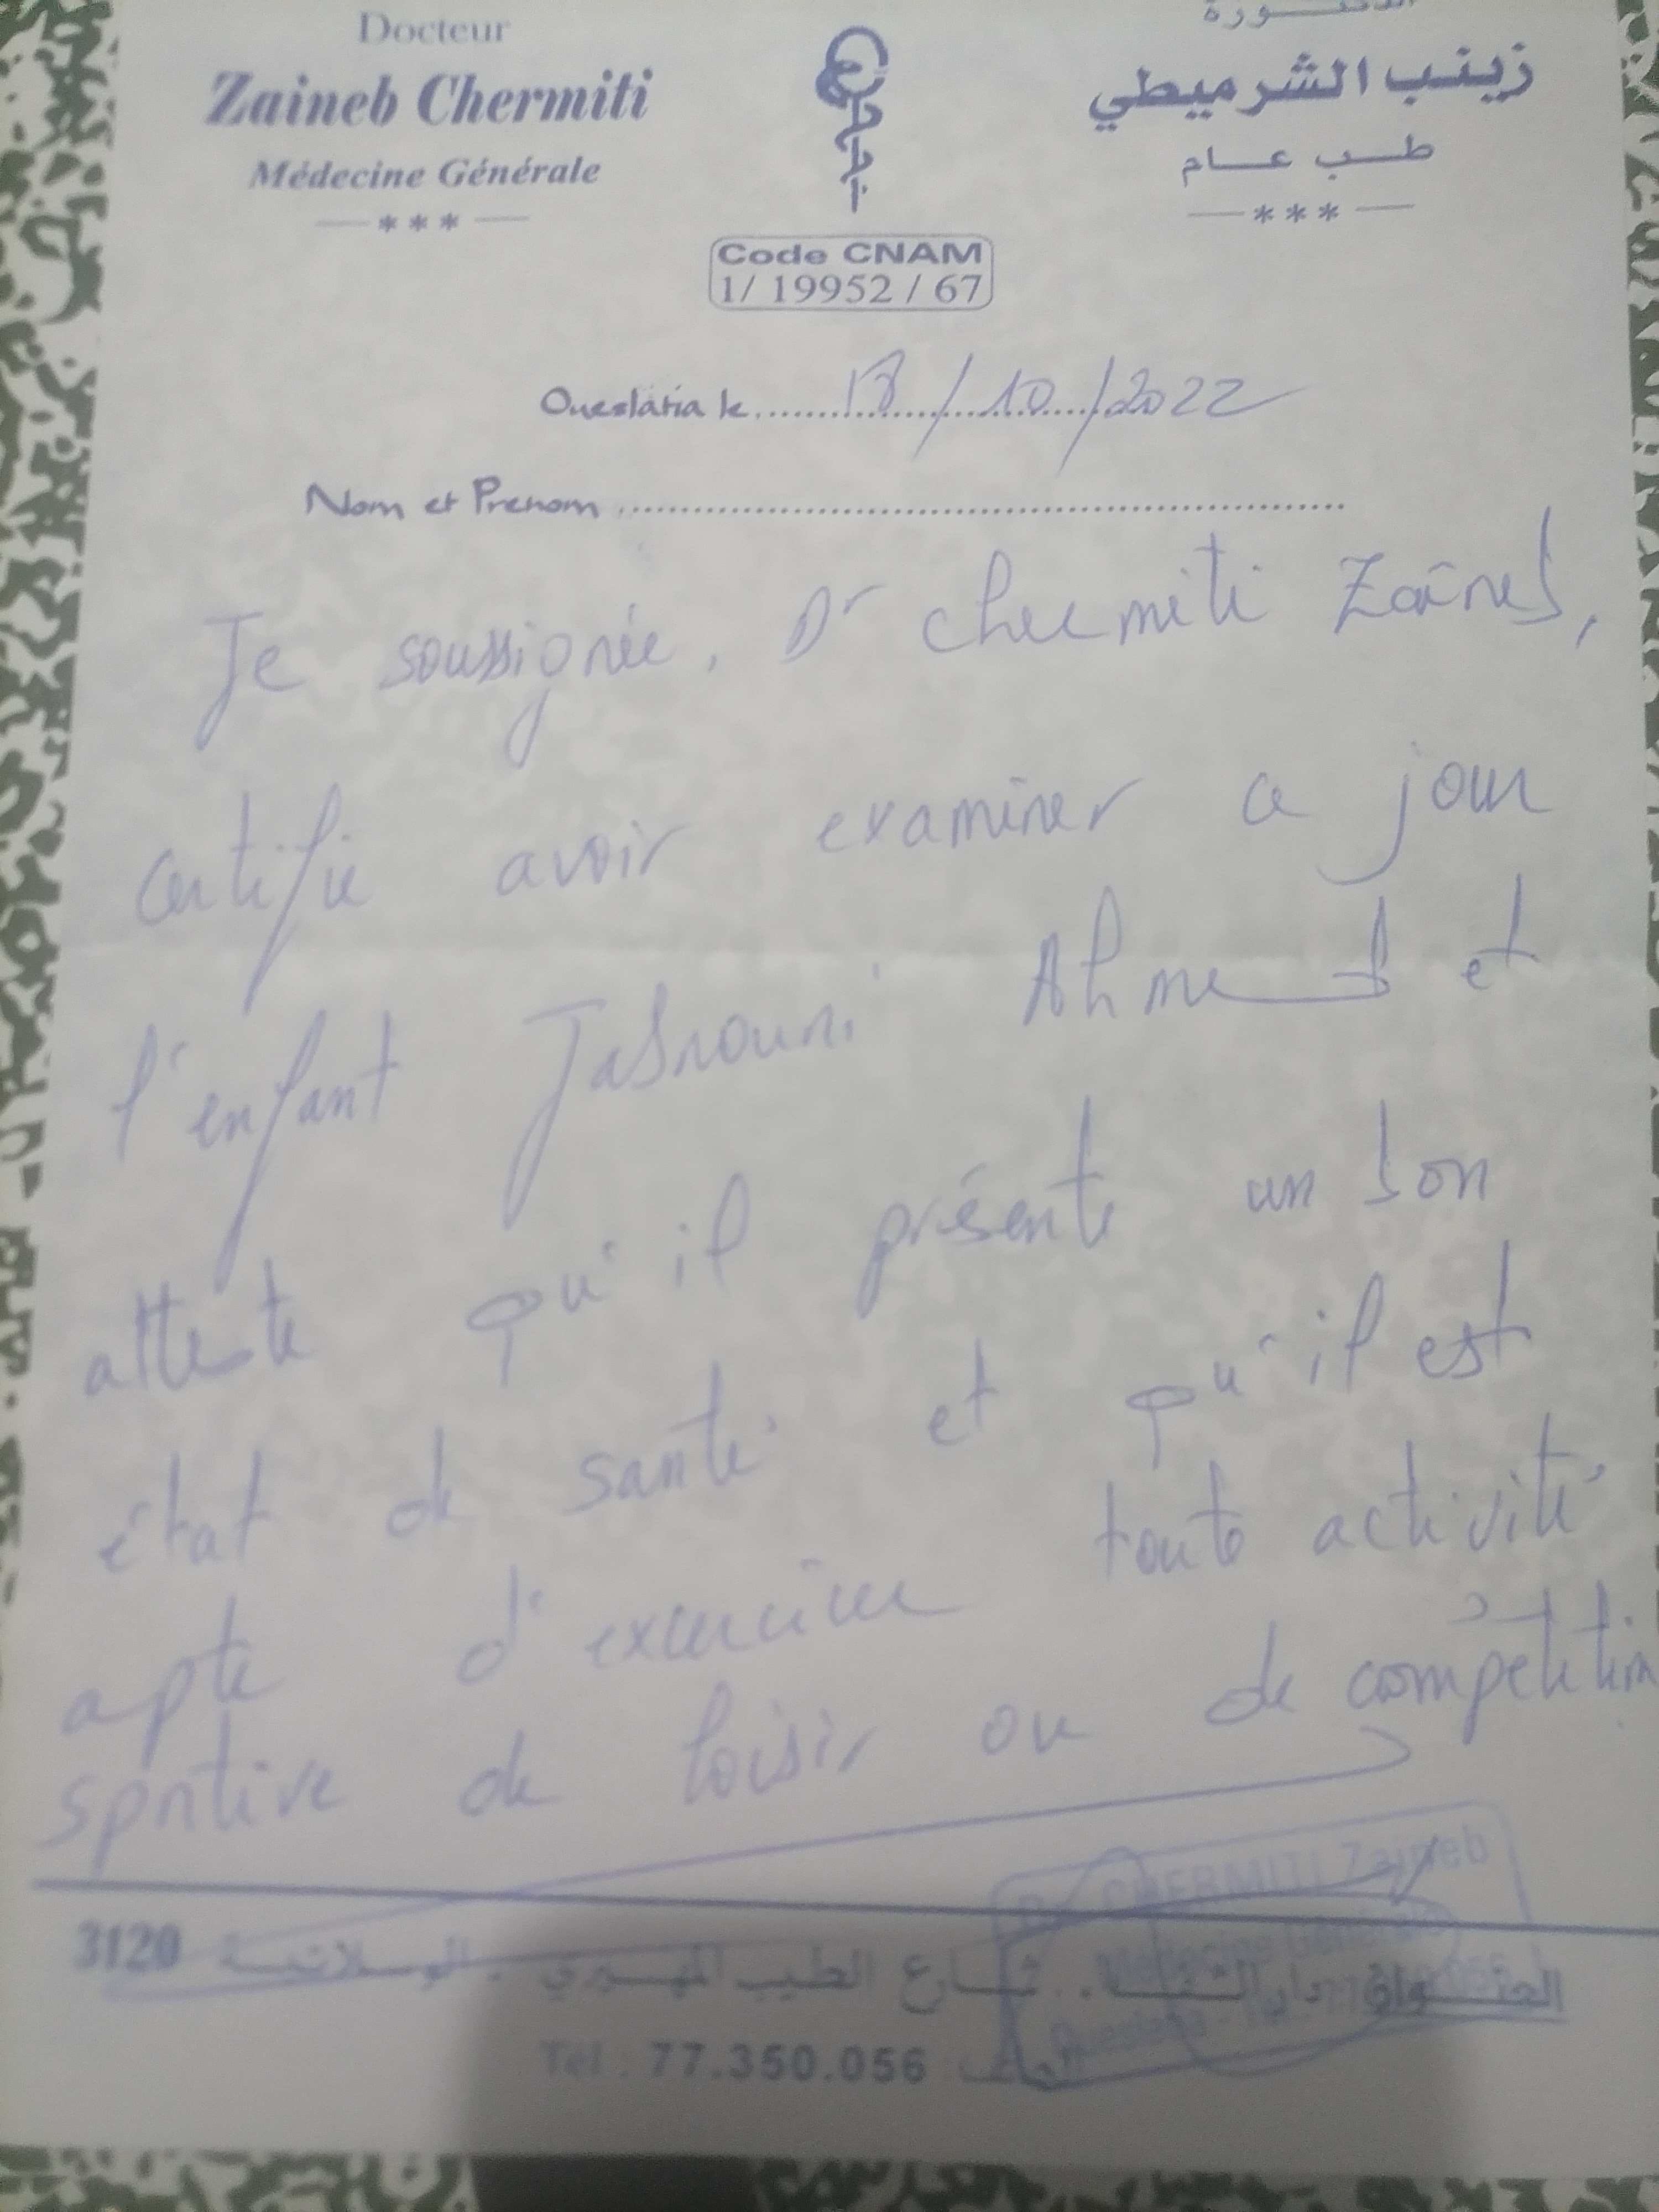 Docteur
Zaineb Chermiti
Médecine Générale
الدكتورة
زينب الشرميطي
طب عام
Code CNAM
1/ 19952 / 67
Oueslatia le 18/10/2022
Nom et Prenom
Je soussignée, Dr Chermiti Zaîneb,
certifie avoir examiner ce jour
l'enfant Jabnouni Ahmed et
atteste qu'il présente un bon
état de santé et qu'il est
apte d'exercice toute activité
sportive de loisir ou de compétition
Dr CHERMITI Zaineb
Médecine Générale
العنوان دار الشفاء . شارع الطيب المهيري . الوسلاتية 3120
Tél : 77.350.056 الهاتف